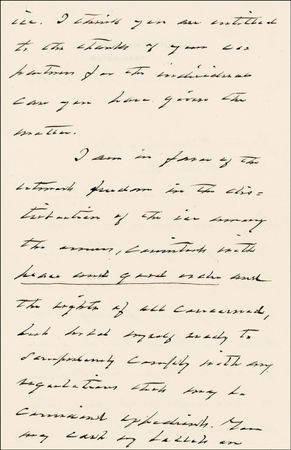 ice. I think you are entitled
to the thanks of your co-
partners for the individual
care you have given the
matter.
I am in favor of the
utmost freedom in the dis=
tribution of the ice among
the owners, consistent with
peace and good order and
the rights of all concerned,
but hold myself ready to
comply with any
regulations that may be
expedient. You
may cast my ballot on